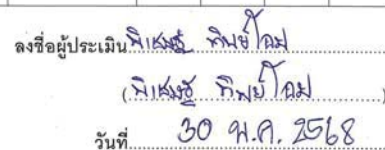 ลงชื่อผู้ประเมิน พิเชษฐ์ ทิพย์โอม
(พิเชษฐ์ ทิพย์โอม)
วันที่ 30 พ.ค. 2568